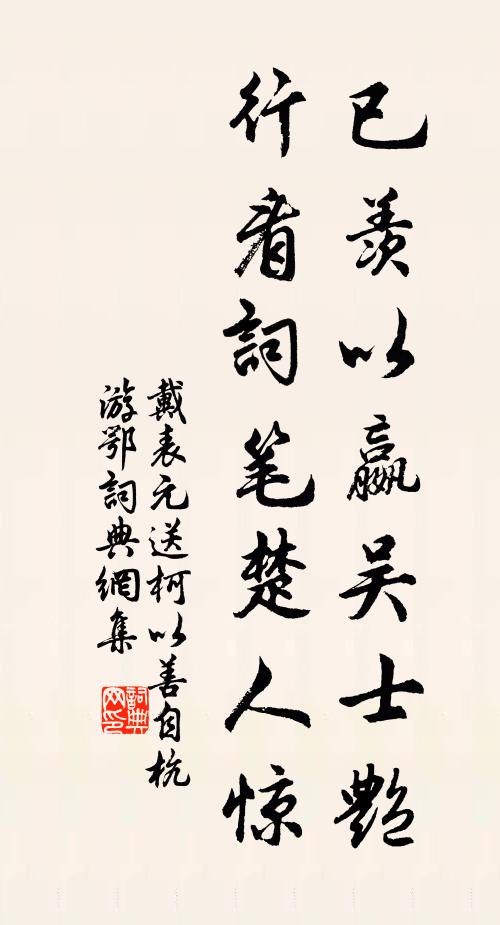 已羡以嬴吴士艷
行看詞笔楚人惊
戴表元送柯以善自杭
游鄂詞典網集
詞典
网印